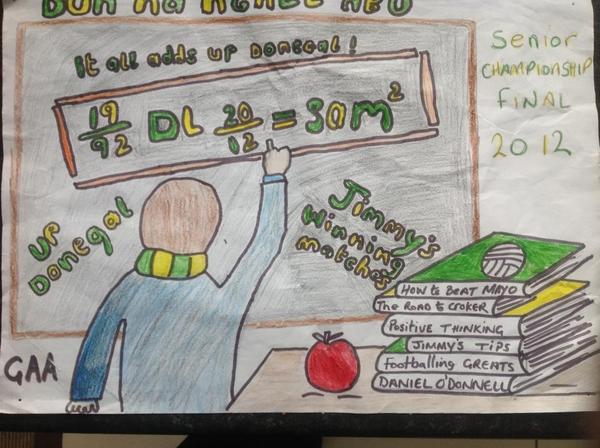 DUN NA
It all adds up Donegal!
19/92 DL 20/12 = SAM²
Senior
CHAMPIONSHIP
FINAL
2012
UP
Donegal
Jimmy's
Winning
matches
HOW to BEAT MAYO
The ROAD to CROKER
Positive THINKING
JIMMY'S TIPS
Footballing GREATS
DANIEL O'DONNELL
GAA